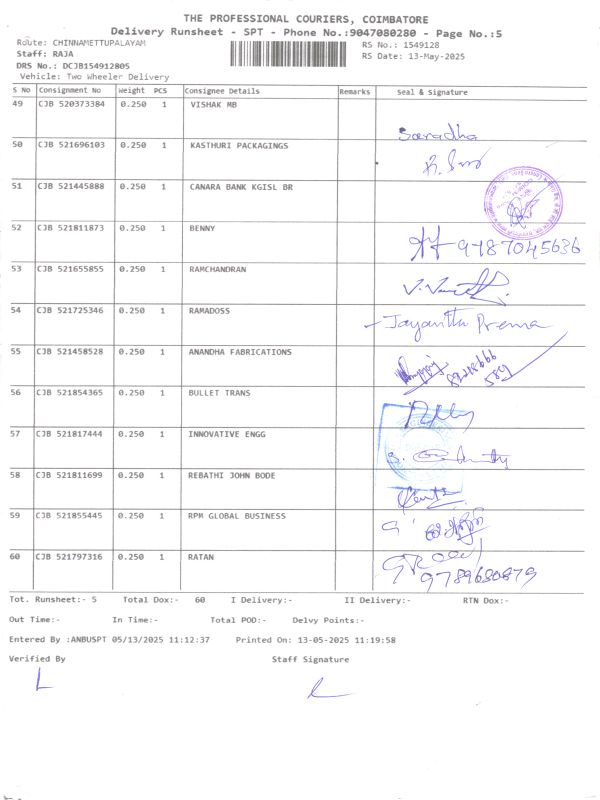 THE PROFESSIONAL COURIERS, COIMBATORE
Delivery Runsheet - SPT - Phone No.:9047080280 - Page No.:5
Route: CHINNAMETTUPALAYAM RS No.: 1549128
Staff: RAJA RS Date: 13-May-2025
DRS No.: DCJB154912805
Vehicle: Two Wheeler Delivery
S No Consignment No Weight PCS Consignee Details Remarks Seal & Signature
49 CJB 520373384 0.250 1 VISHAK MB
Saradha
50 CJB 521696103 0.250 1 KASTHURI PACKAGINGS
51 CJB 521445888 0.250 1 CANARA BANK KGISL BR
52 CJB 521811873 0.250 1 BENNY
9787045636
53 CJB 521655855 0.250 1 RAMCHANDRAN
54 CJB 521725346 0.250 1 RAMADOSS
Jayanthi Prema
55 CJB 521458528 0.250 1 ANANDHA FABRICATIONS
56 CJB 521854365 0.250 1 BULLET TRANS
57 CJB 521817444 0.250 1 INNOVATIVE ENGG
58 CJB 521811699 0.250 1 REBATHI JOHN BODE
59 CJB 521855445 0.250 1 RPM GLOBAL BUSINESS
60 CJB 521797316 0.250 1 RATAN
9789680879
Tot. Runsheet:- 5 Total Dox:- 60 I Delivery:- II Delivery:- RTN Dox:-
Out Time:- In Time:- Total POD:- Delvy Points:-
Entered By :ANBUSPT 05/13/2025 11:12:37 Printed On: 13-05-2025 11:19:58
Verified By Staff Signature